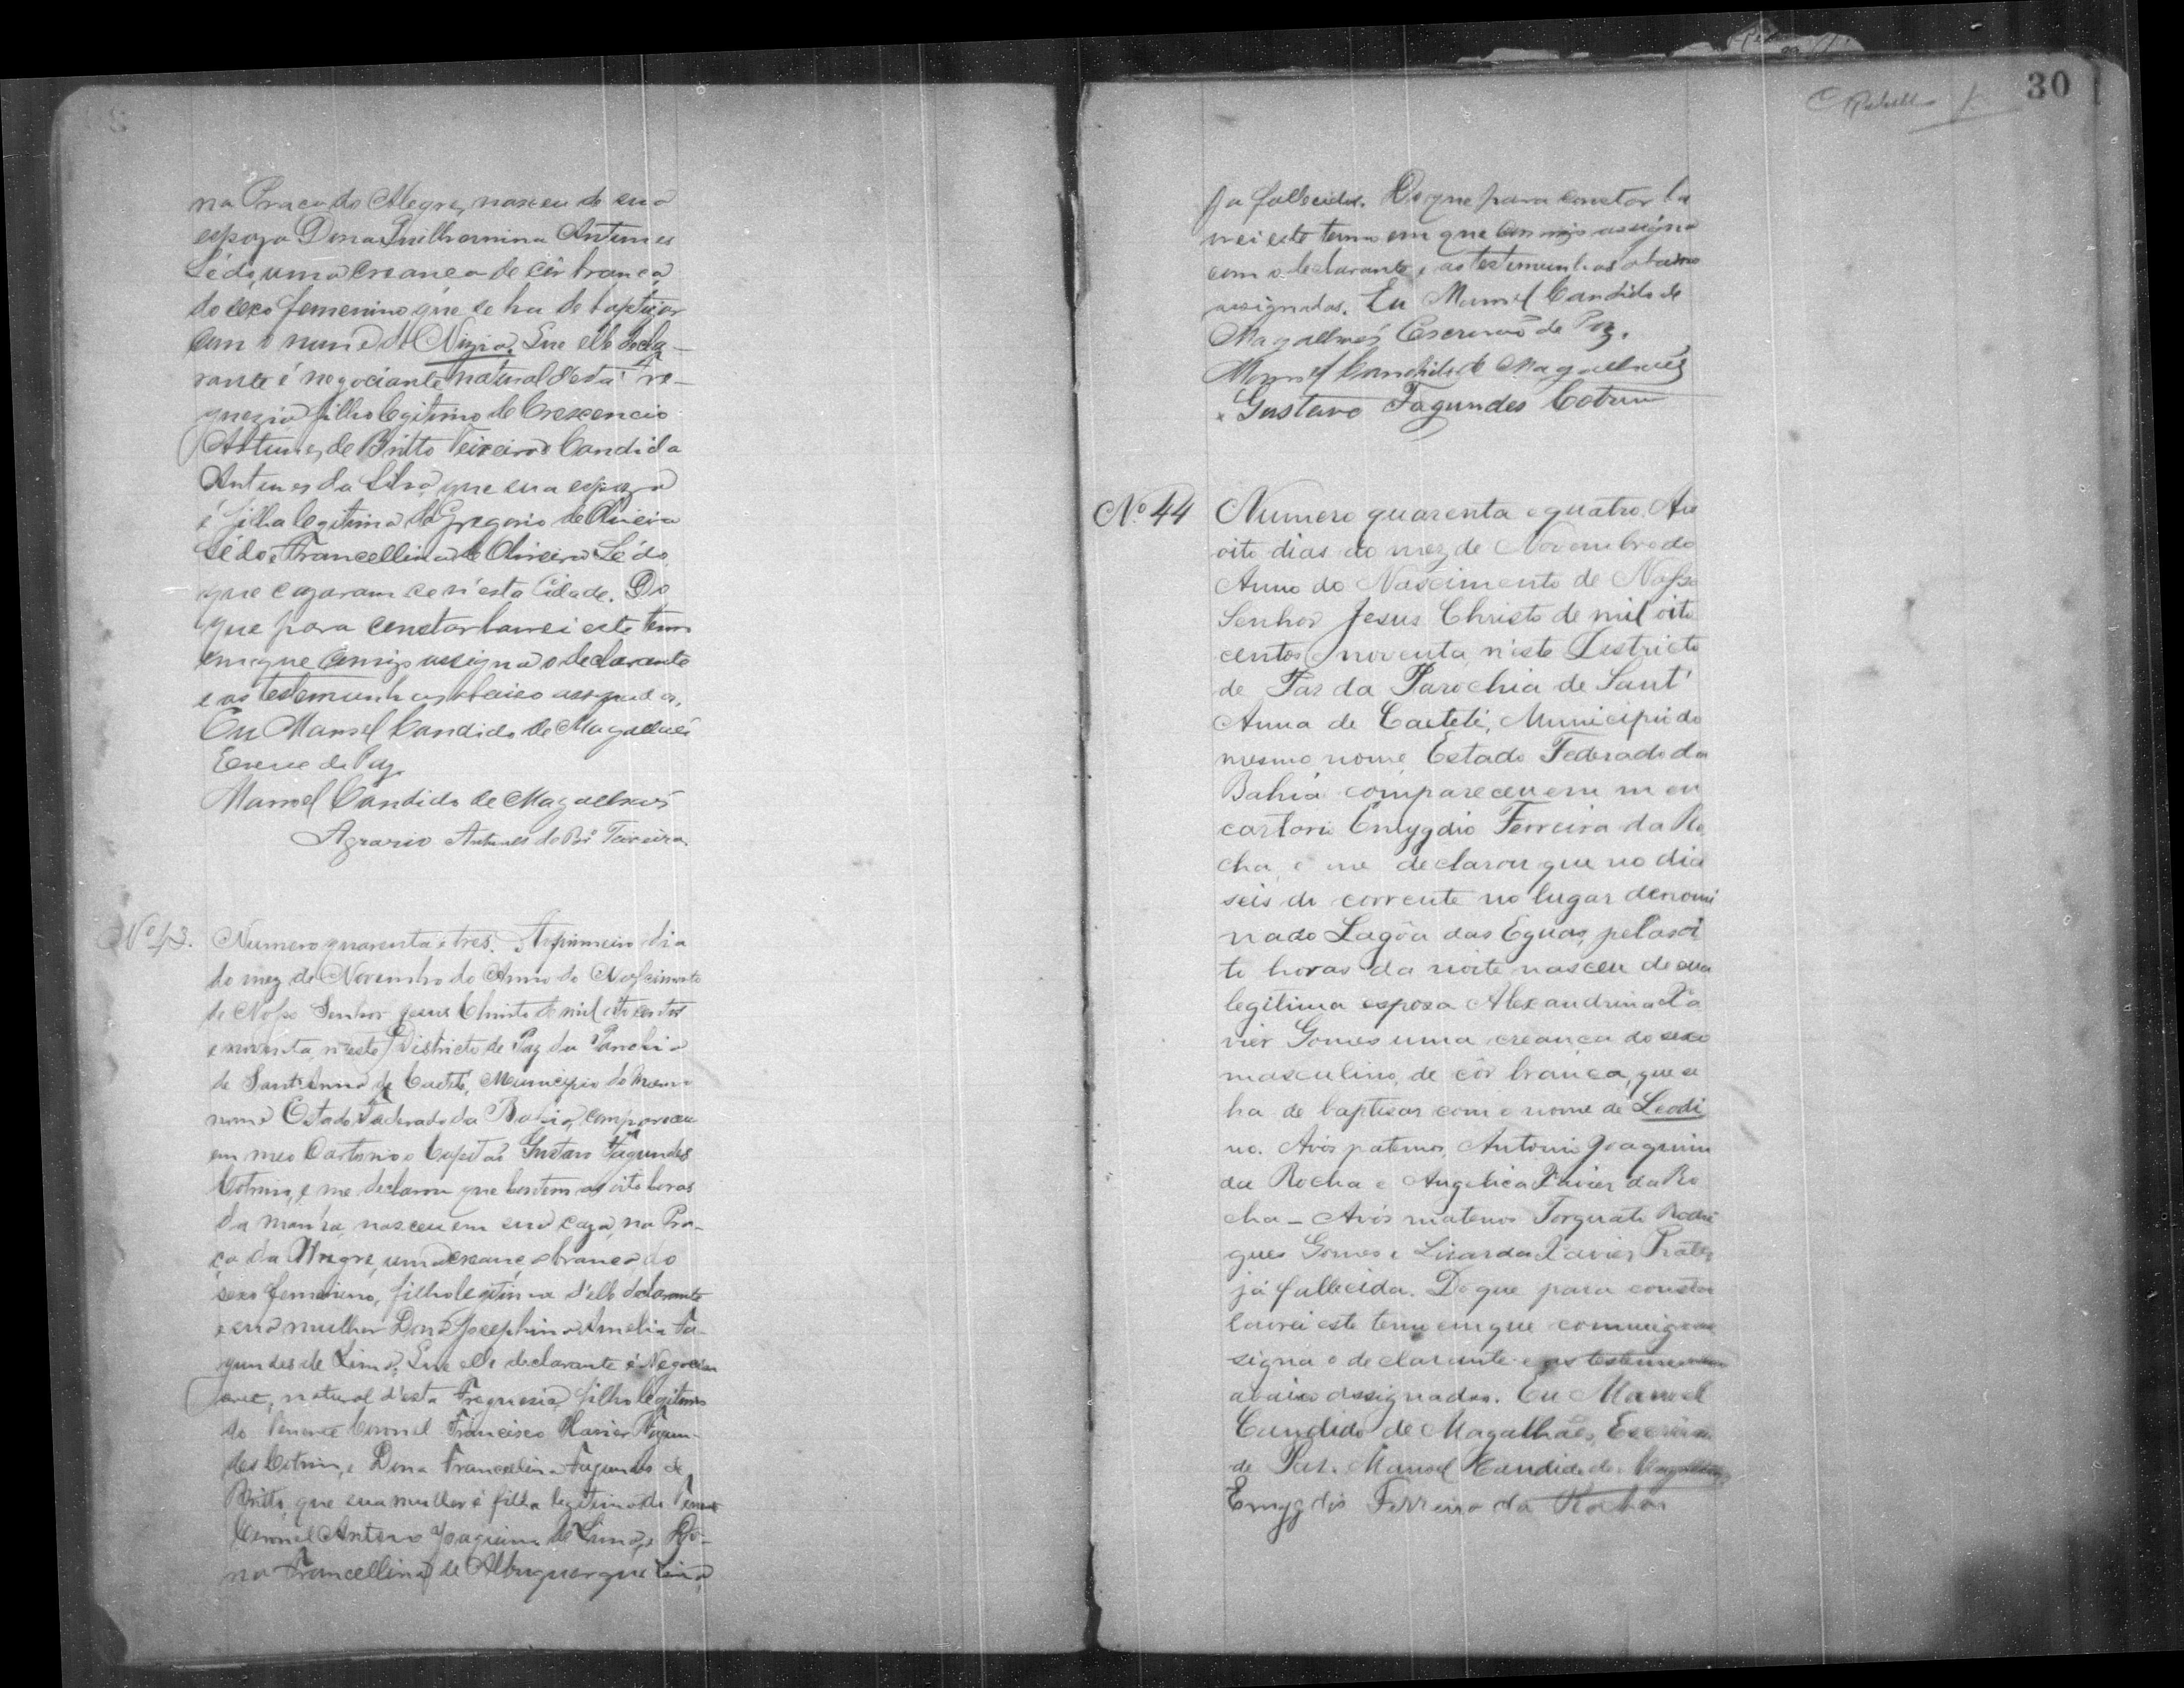 na Praça do Alegre, nasceu de sua
espoza Dona Guilhermina Antunes
Lédo, uma creança de côr branca,
do sexo femenino que se ha de baptizar
com o nome de Nizia. Que elle decla-
rante é negociante natural d'esta Fre-
guezia filho legitimo de Crescencio
Antunes de Britto Teixeira e Candida
Antunes da Silva, que sua espoza
é filha legitima de Gregorio de Oliveira
Lédo e Francellina de Oliveira Lédo,
que cazaram se n'esta Cidade. Do
que para constar lavrei este termo
em que comigo assigna o declarante
e as testemunhas abaixo assignadas.
Eu Manoel Candido de Magalhães
Escrivão de Paz.
Manoel Candido de Magalhães
Agrario Antunes de Br.º Teixeira
Nº 43. Numero quarenta e tres. Ao primeiro dia
do mez de Novembro do Anno do Nascimento
de Nosso Senhor Jesus Christo de mil oito centos
e noventa, n'este Districto de Paz da Parochia
de Sant'Anna de Caeteté, Municipio do mesmo
nome Estado Federado da Bahia, compareceu
em meo Cartorio o Capitão Gustavo Fagundes
Cotrim, e me declarou que hontem as oito horas
da manhã, nasceu em sua caza, na Pra-
ça da Alegre, uma creança branca do
sexo femenino, filha legitima d'elle declarante
e sua mulher Dona Josephina Amelia Fa-
gundes de Lima. Que elle declarante é Negocian
te, natural d'esta Freguezia, filho legitimo
do Tenente Coronel Francisco Xavier Fagun-
des Cotrim, e Dona Francelina Fagundes de
Britto, que sua mulher é filha legitima do Tenente
Coronel Antonio Joaquim de Lima, e Do-
na Francellina de Albuquerque Lima,
30
ja fallecidos. Do que para constar la
vrei este termo em que comigo assigna
com o declarante e as testemunhas abaixo
assignadas. Eu Manoel Candido de
Magalhães Escrivão de Paz.
Manoel Candido de Magalhães
Gustavo Fagundes Cotrim
Nº 44 Numero quarenta e quatro. Aos
oito dias do mez de Novembro do
Anno do Nascimento de Nosso
Senhor Jesus Christo de mil oito
centos e noventa, n'este Districto
de Paz da Parochia de Sant'
Anna de Caeteté, Municipio do
mesmo nome Estado Federado da
Bahia compareceu em meu
cartorio Emygdio Ferreira da Ro
cha, e me declarou que no dia
seis do corrente no lugar denomi
nado Lagôa das Eguas, pelas oi
to horas da noite nasceu de sua
legitima esposa Alexandrina Xa
vier Gomes uma creança do sexo
masculino, de côr branca, que se
ha de baptisar com o nome de Leodi
no. Avós paternos, Antonio Joaquim
da Rocha e Angelica Xavier da Ro
cha - Avós maternos Torquato Rodri
gues Gomes e Lizarda Xavier Prates
já fallecida. Do que para constar
lavrei este termo em que commigo as
signa o declarante e as testemunhas
abaixo assignadas. Eu Manoel
Candido de Magalhães, Escrivão
de Paz. Manoel Candido de Magalhães
Emygdio Ferreira da Rocha